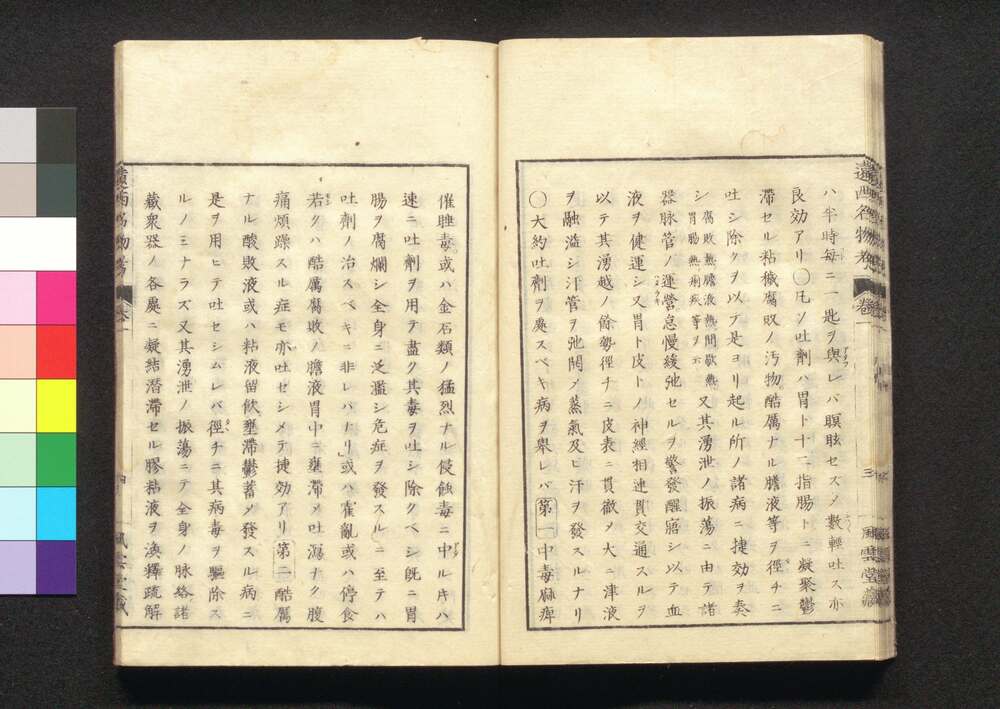 ハ半時每ニ一匙ヲ與レバ瞑眩セズメ數輕吐ス亦
良効アリ〇凢ソ吐劑ハ胃ト十二指腸トニ凝聚鬱
滯セル粘穢腐敗ノ汚物酷厲ナル膽液等ヲ徑チニ
吐シ除クヲ以テ是ヨリ起ル所ノ諸病ニ捷効ヲ奏
シ腐敗熱膽液熱間歇熱胃腸熱痢疾等ヲ云又其湧泄ノ振蕩ニ由テ諸
器脉管ノ運營怠慢緩弛セルヲ警發醒寤シ以テ血
液ヲ健運シ又胃ト皮トノ神經相連貫交通スルヲ
以テ其湧越ノ餘勢徑チニ皮表ニ貫徹メ大ニ津液
ヲ融溢シ汗管ヲ弛開メ蒸氣及ビ汗ヲ發スルナリ
〇大約吐劑ヲ處スベキ病ヲ舉レバ第一中毒麻痺
遠西名物考 卷一 三 風雲堂藏
催睡毒或ハ金石類ノ猛烈ナル侵蝕毒ニ中ルキハ
速ニ吐劑ヲ用テ盡ク其毒ヲ吐シ除クベシ旣ニ胃
腸ヲ腐爛シ全身ニ泛濫シ危症ヲ發スルニ至テハ
吐劑ノ治スベキニ非レバナリ」或ハ霍亂或ハ停食
若クハ酷厲腐敗ノ膽液胃中ニ壅滯メ吐瀉ナク腹
痛煩躁スル症モ亦吐セシメテ捷効アリ第二酷厲
ナル酸敗液或ハ粘液留飮壅滯鬱蓄メ發スル病ニ
是ヲ用ヒテ吐セシムレバ徑チニ其病毒ヲ驅除ス
ルノミナラズ又其湧泄ノ振蕩ニテ全身ノ脉絡諸
藏衆器ノ各處ニ凝結潛滯セル膠粘液ヲ渙釋疏解